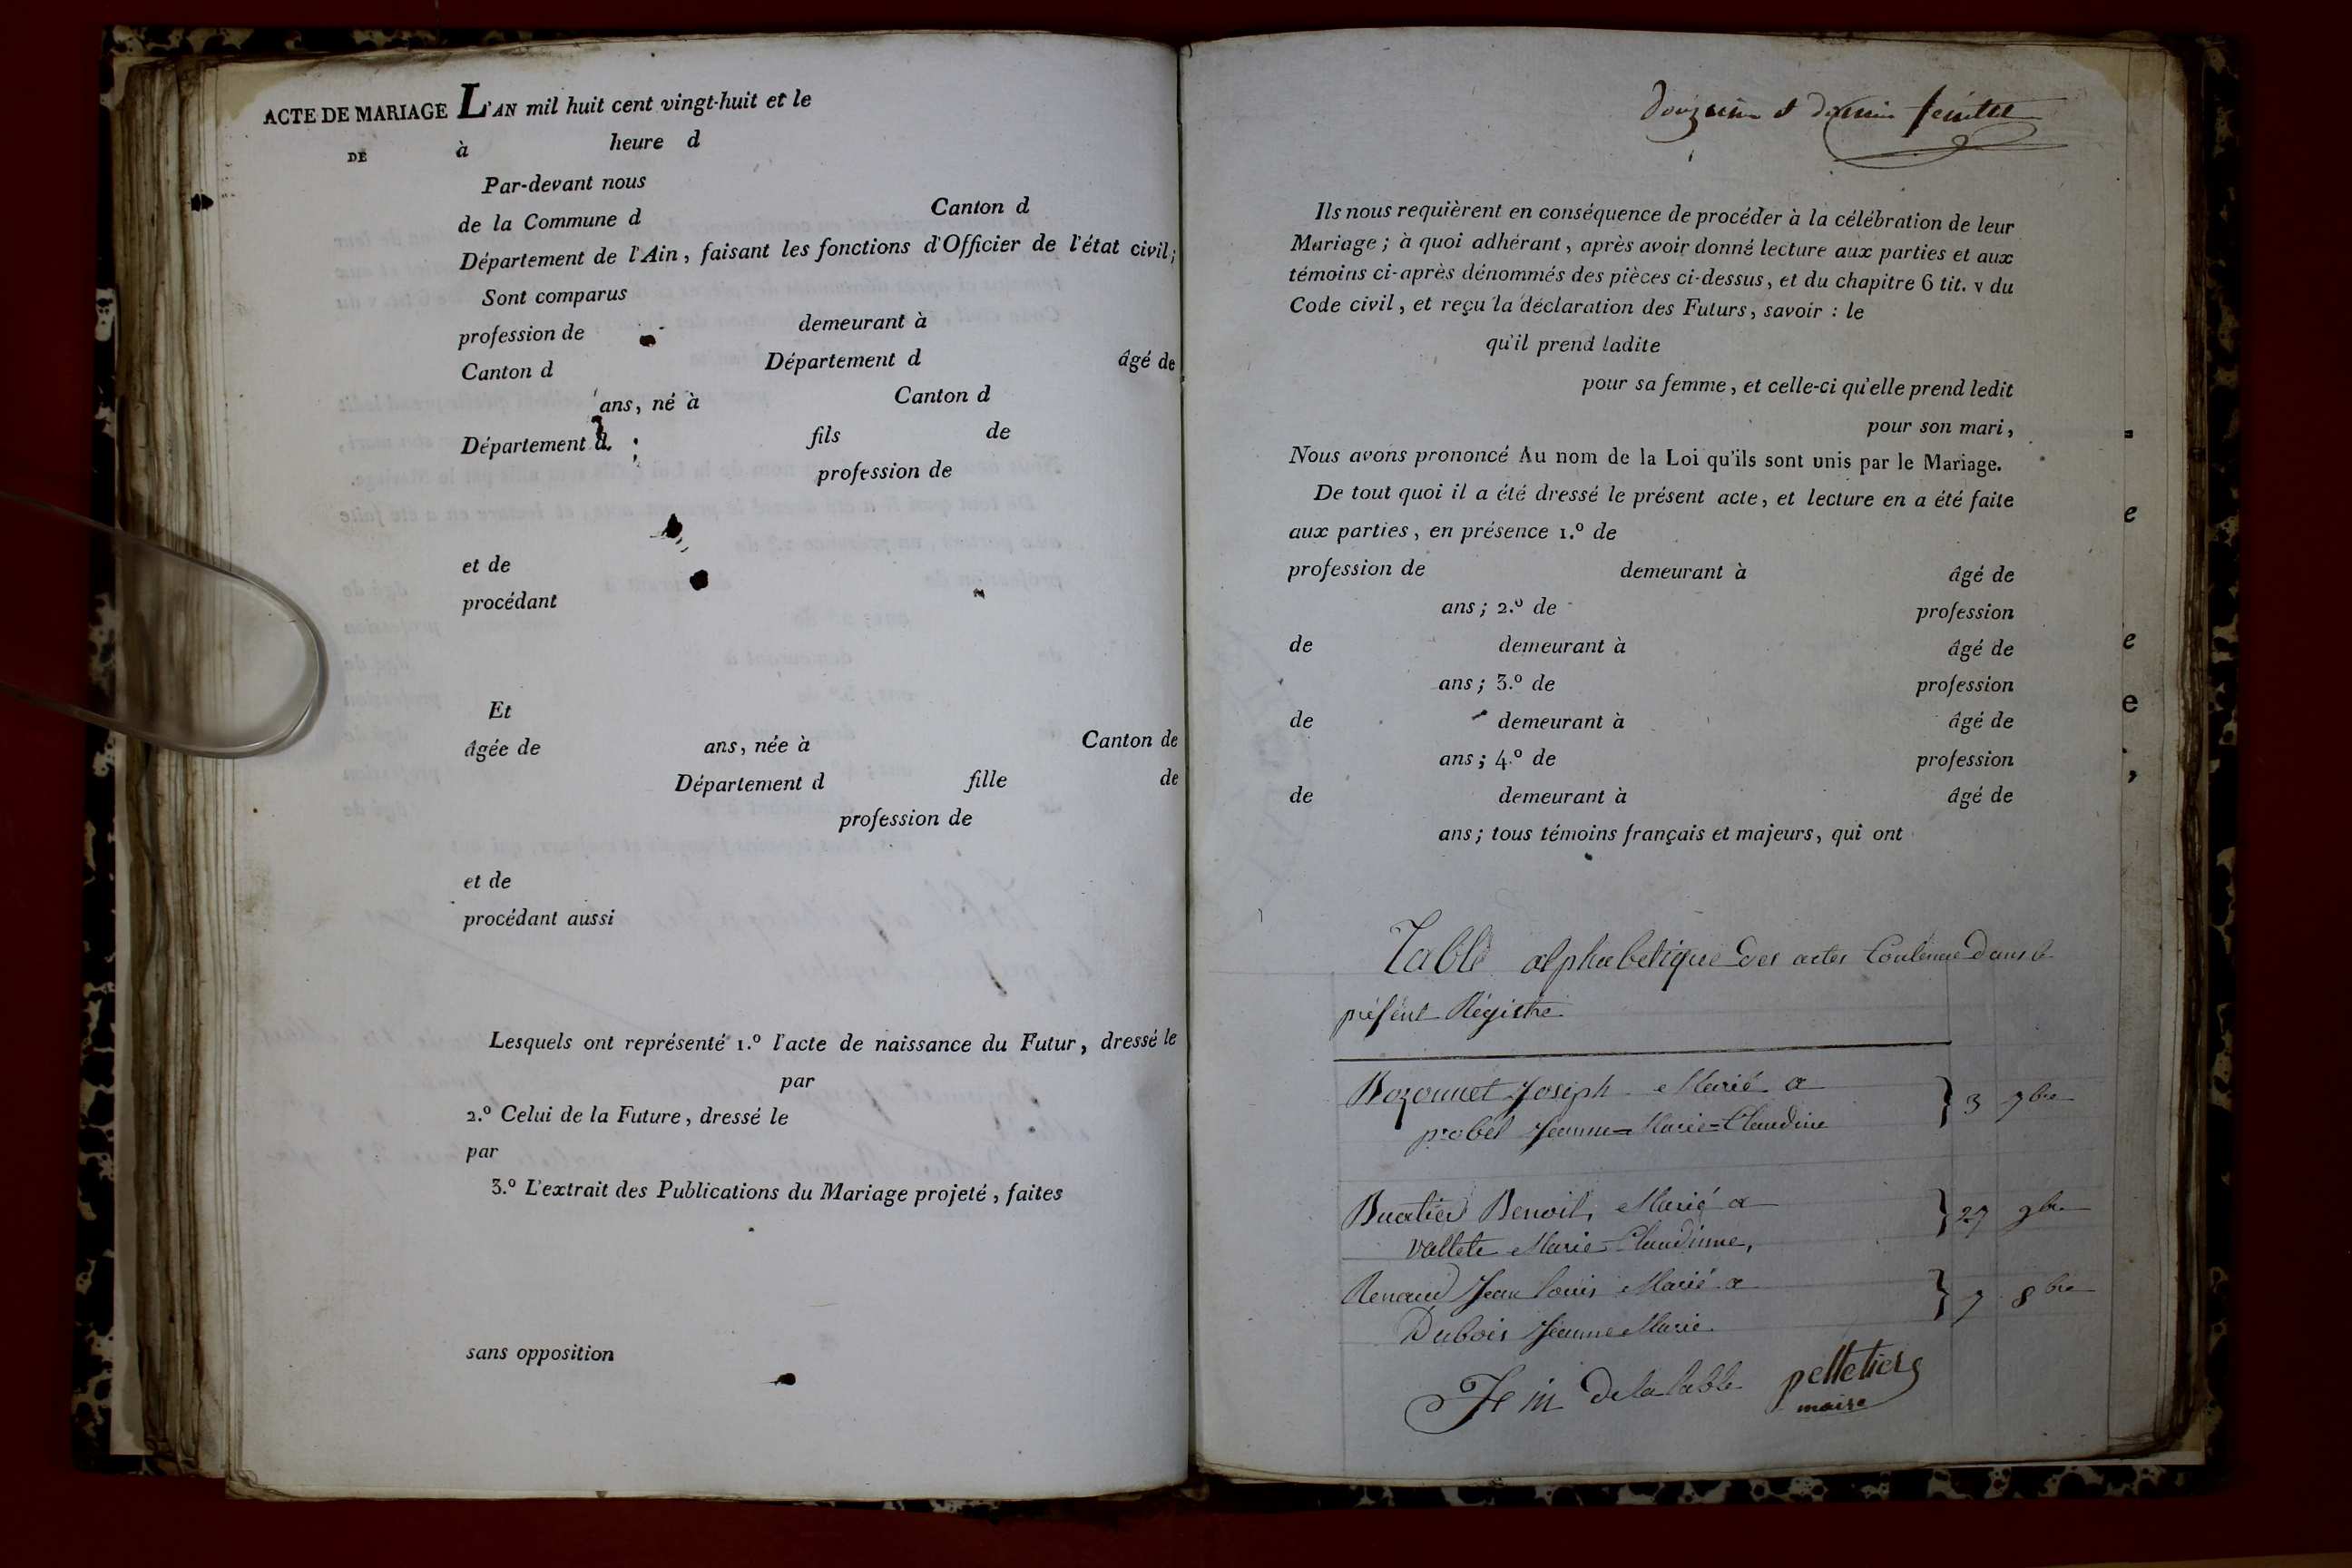 ACTE DE MARIAGE L'AN mil huit cent vingt-huit et le
DE à heure d
Par-devant nous
de la Commune d Canton d
Département de l'Ain, faisant les fonctions d'Officier de l'état civil;
Sont comparus
profession de demeurant à
Canton d Département d âgé de
ans, né à Canton d
Département d. fils de
profession de
et de
procédant
Et
âgée de ans, née à Canton de
Département d fille de
profession de
et de
procédant aussi
Lesquels ont représenté 1.º l'acte de naissance du Futur, dressé le
par
2.º Celui de la Future, dressé le
par
3.º L'extrait des Publications du Mariage projeté, faites
sans opposition
douzieme & dernier feuillet
Ils nous requièrent en conséquence de procéder à la célébration de leur
Mariage; à quoi adhérant, après avoir donné lecture aux parties et aux
témoins ci-après dénommés des pièces ci-dessus, et du chapitre 6 tit. v du
Code civil, et reçu la déclaration des Futurs, savoir : le
qu'il prend ladite
pour sa femme, et celle-ci qu'elle prend ledit
pour son mari,
Nous avons prononcé Au nom de la Loi qu'ils sont unis par le Mariage.
De tout quoi il a été dressé le présent acte, et lecture en a été faite
aux parties, en présence 1.º de
profession de demeurant à âgé de
ans; 2.º de profession
de demeurant à âgé de
ans; 3.º de profession
de demeurant à âgé de
ans; 4.º de profession
de demeurant à âgé de
ans; tous témoins français et majeurs, qui ont
Table alphabetique des actes Contenue dans le
présent Régistre
Bozonnet Joseph Marié a } 3 7bre
probel Jeanne=Marie=Claudine
Buatier Benoit, Marié a } 27 9bre
vallete Marie-Claudinne,
Renaud Jean Louis Marié a } 7 8bre
Dubois Jeanne Marie
Fin De la table pelletier
maire